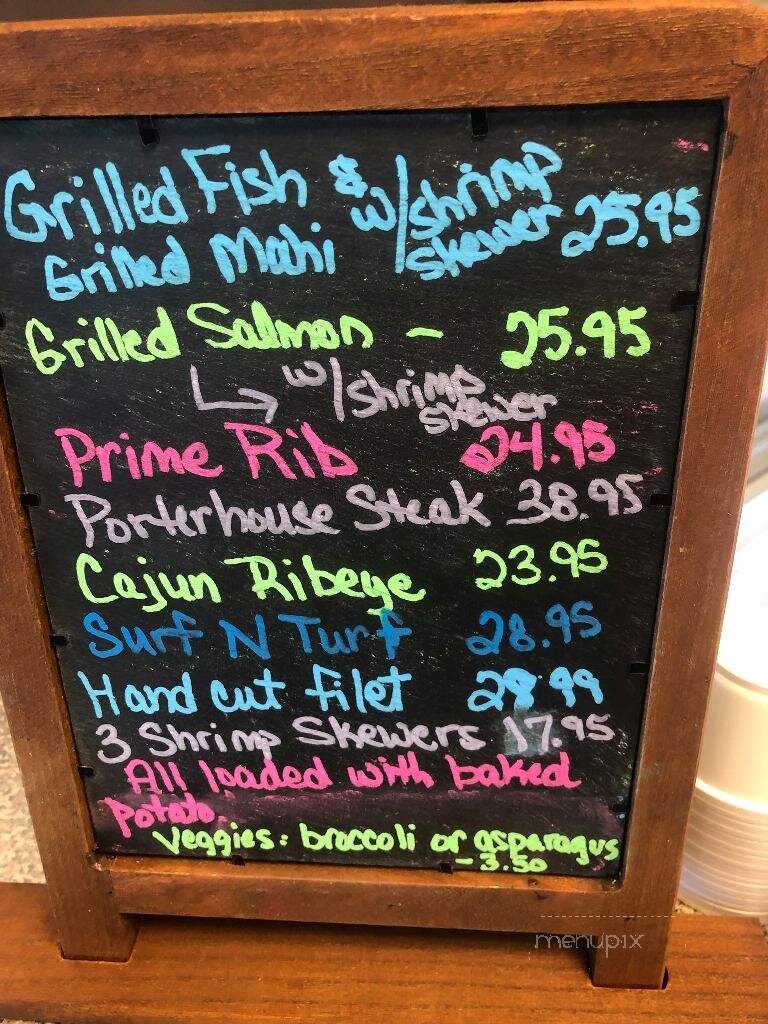 Grilled Fish & w/shrimp
Grilled Mahi skewer 25.95
Grilled Salmon - 25.95
w/shrimp
skewer
Prime Rib 24.95
Porterhouse Steak 38.95
Cajun Ribeye 23.95
Surf N Turf 28.95
Hand cut filet 28.99
3 Shrimp Skewers 17.95
All loaded with baked
potato.
Veggies: broccoli or asparagus
- 3.50
menupix